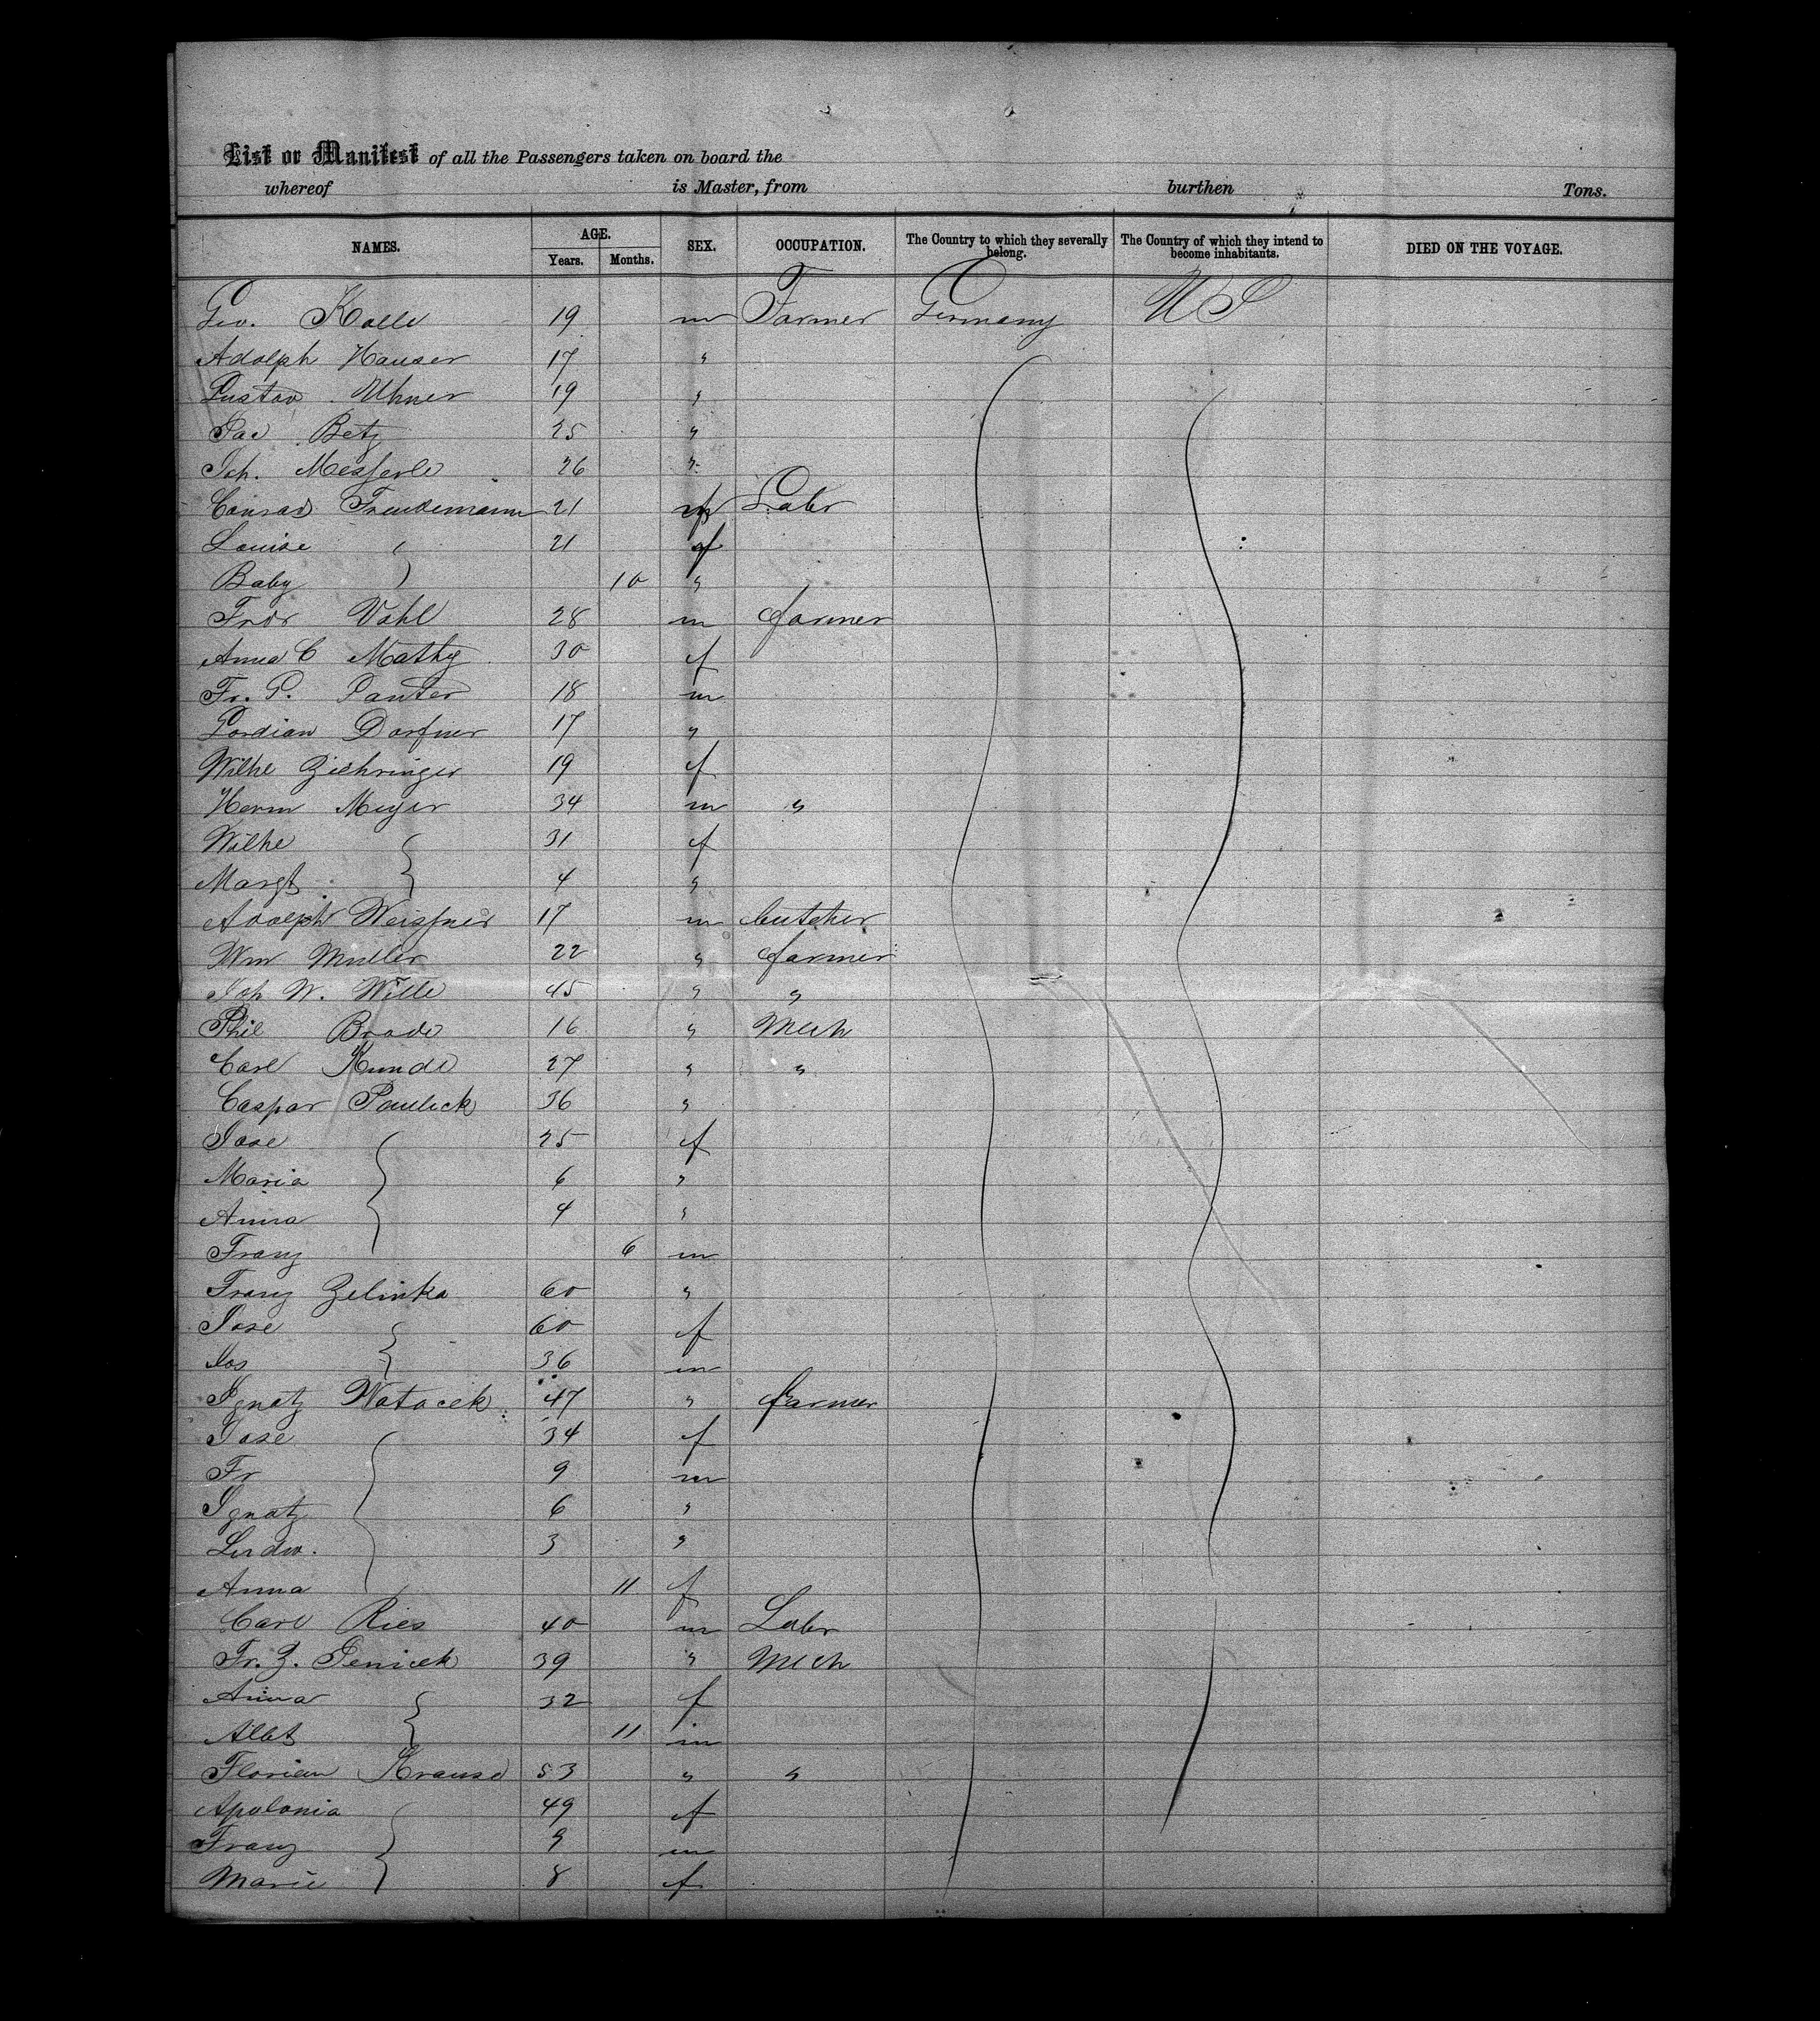 List or Manifest of all the Passengers taken on board the
whereof is Master, from burthen Tons.
NAMES. AGE. Years. Months. SEX. OCCUPATION. The Country to which they severally belong. The Country of which they intend to become inhabitants. DIED ON THE VOYAGE.
Geo. Kolle 19 m Farmer Germany U S
Adolph Hauser 17 "
Gustav Uhner 19 "
Jac Betz 25 "
Joh. Messerle 26 "
Conrad Freudemann 21 m Labr
Louise " 21 f
Baby ) 10 "
Frdr Vahl 28 m farmer
Anna C Mathy 30 f
Fr. G. Panter 18 m
Gordian Dorfner 17 "
Wilhe Ziehringer 19 f
Herm Meyer 34 m "
Wilhe 31 f
Margt 4 "
Adolph Weissner 17 m butcher
Wm Muller 22 " farmer
Joh W. Wille 45 " "
Phil Brode 16 " Mech
Carl Kunde 27 " "
Caspar Paulick 36 "
Jose 25 f
Maria 6 "
Anna 4 "
Franz 6 m
Franz Zelinka 60 "
Jose 60 f
Jos 36 m
Ignatz Watacek 47 " farmer
Jose 34 f
Fr 9 m
Ignatz 6 "
Ludw. 3 "
Anna 11 f
Carl Ries 40 m Labr
Fr. Z. Jenicek 39 " Mech
Anna 32 f
Albt 11 m
Florian Krause 53 " "
Apolonia 49 f
Franz 9 m
Marie 8 f